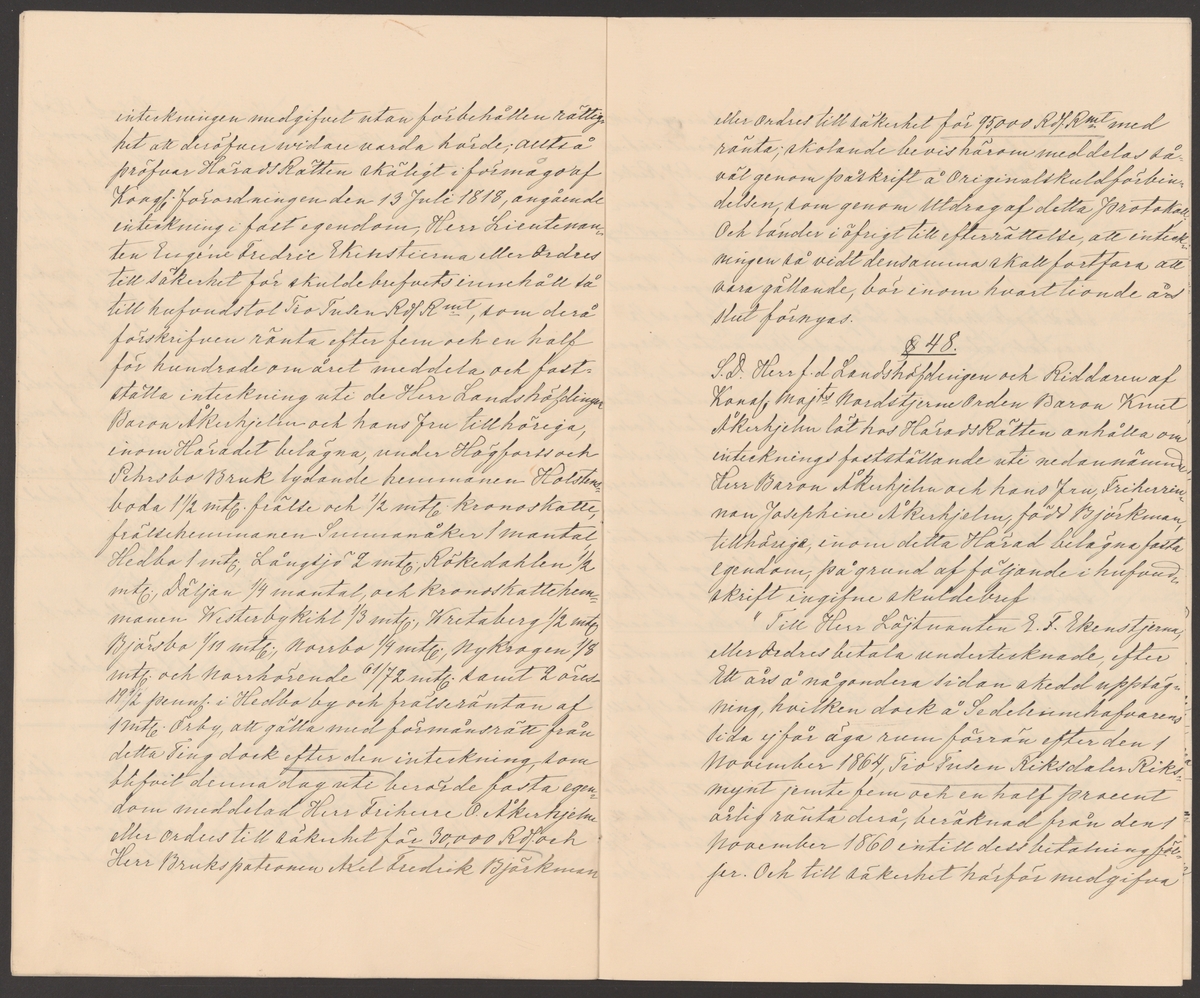 inteckningen medgifvet utan förbehållen rättig-
het att deröfver widare varda hörde; alltså
pröfvar HäradsRätten skäligt i förmågo af
Kongl. Förordningen den 13 Juli 1818, angående
inteckning i fast egendom, Herr Lieutenan-
ten Eugéne Fredric Ekenstierna eller Ordres
till säkerhet för skuldebrefvets innehåll så
till hufvudstol Tio Tusen Rd/ Rmt, som derå
förskrifven ränta efter fem och en half
för hundrade om året meddela och fast-
ställa inteckning uti de Herr Landshöfdingen
Baron Åkerhjelm och hans fru tillhöriga,
inom Häradet belägna, under Högfors och
Pehrsbo Bruk lydande hemmanen Holstens-
boda 1 1/2 mtl. frälse och 1/2 mtl. kronoskatte,
frälsehemmanen Sunnanåker 1 mantal,
Hedbo 1 mtl., Långsjö 2 mtl., Rökedahlen 1/2
mtl., Däljan 1/4 mantal, och kronoskattehem-
manen Westerbykihl 1/3 mtl., Wretaberg 1/2 mtl.
Björsbo 1/12 mtl., Norrbo 1/4 mtl., Nykrogen 1/8
mtl. och Norrhörende 61/72 mtl. samt 2 öres
19 1/2 penn. i Hedbo by och frälseräntan af
1 mtl. Örby, att gälla med förmånsrätt från
detta Ting dock efter den inteckning, som
blifvit denna dag uti berörde fasta egen-
dom meddelad Herr Friherre O. Åkerhjelm
eller ordres till säkerhet för 30,000 Rd/ och
Herr Brukspatronen Axel Fredrik Björkman
eller ordres till säkerhet för 95,000 Rd/ Rmt med
ränta; skolande bevis härom meddelas så-
väl genom påskrift å Originalskuldförbin-
delsen, som genom Utdrag af detta Protokoll.
Och länder i öfrigt till efterrättelse, att inteck-
ningen så vidt densamma skall fortfara att
vara gällande, bör inom hvart tionde års
slut förnyas.
§ 48.
S. D. Herr f. d. Landshöfdingen och Riddaren af
Kongl. Majts Nordstjerne Orden Baron Knut
Åkerhjelm lät hos HäradsRätten anhålla om
intecknings fastställande uti nedannämnde
Herr Baron Åkerhjelm och hans fru, Friherrin-
nan Josephine Åkerhjelm, född Björkman,
tillhöriga, inom detta Härad belägna fasta
egendom, på grund af följande i hufvud-
skrift ingifne skuldebref
" Till Herr Löjtnanten E. F. Ekenstjerna,
eller Ordres betala undertecknade, efter
Ett års å någondera sidan skedd uppsäg-
ning, hvilken dock å Sedelinnehafvarens
sida ej får äga rum förrän efter den 1
November 1864, Tio Tusen Riksdaler Riks-
mynt jemte fem och en half procent
årlig ränta derå, beräknad från den 1
November 1860 intill dess betalning föl-
jer. Och till säkerhet härför medgifva